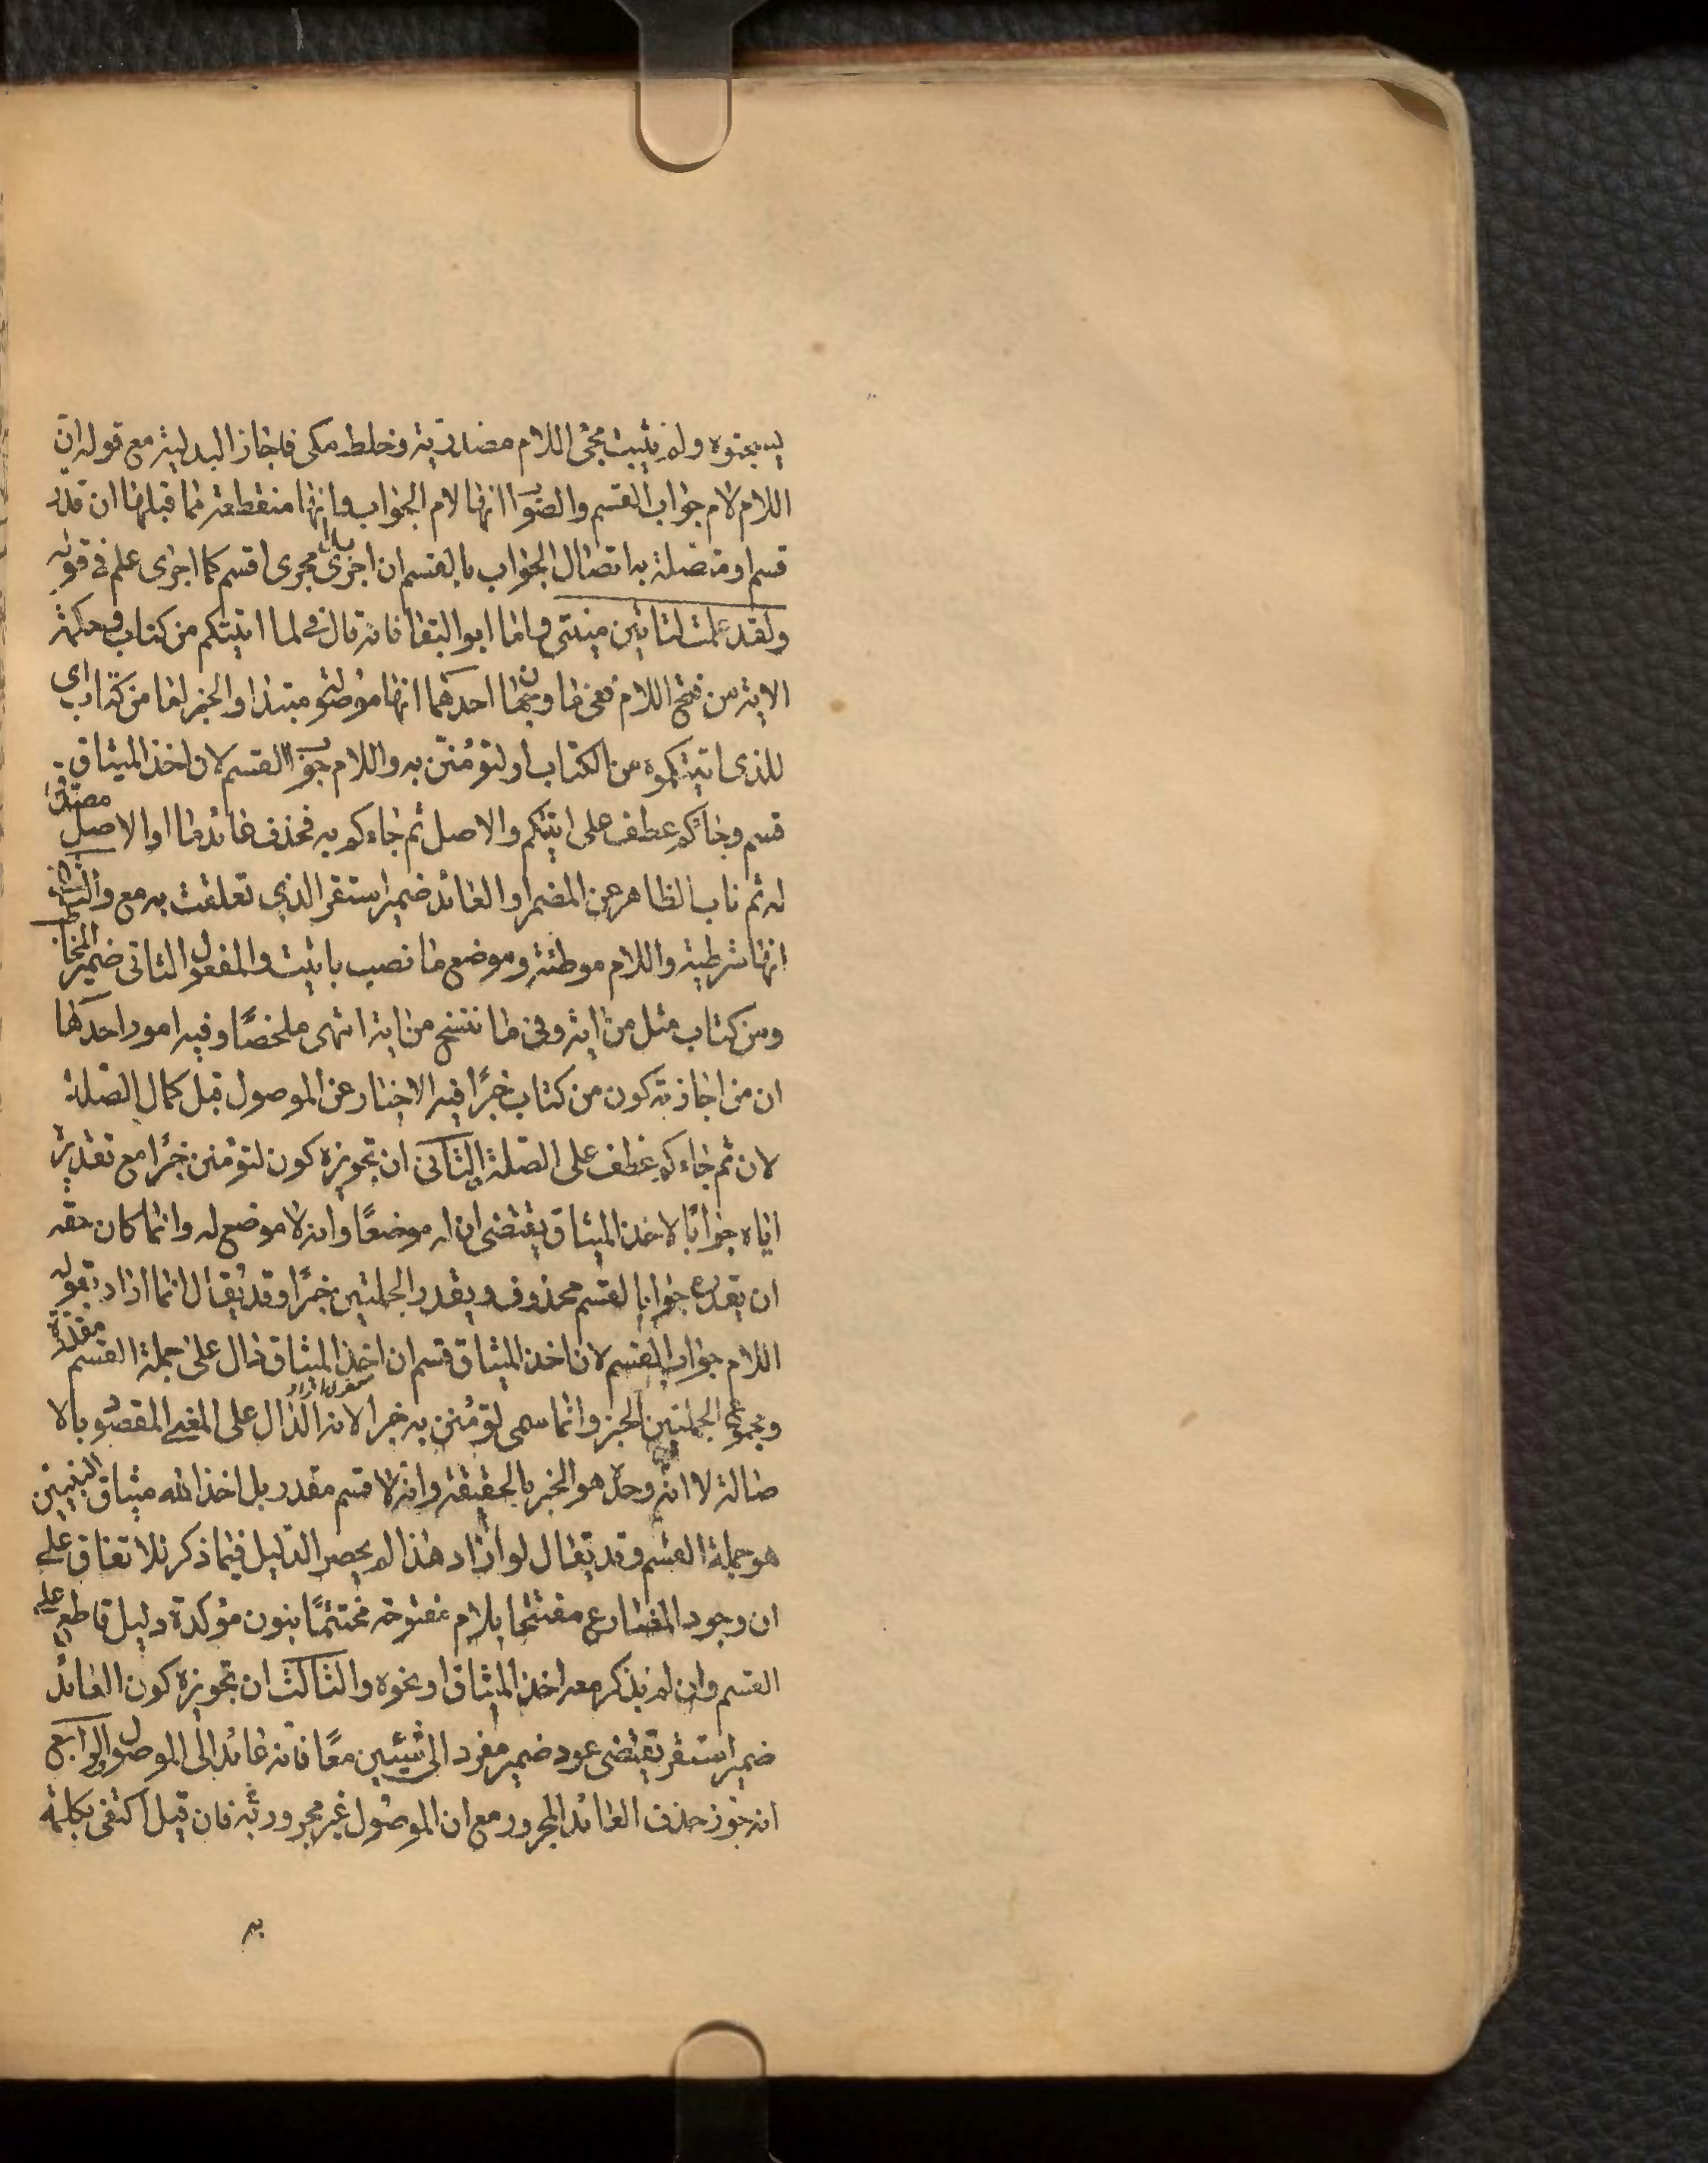 ليسجنوه ولم يثبت مجئ اللام مصدرية وخلط مكى فاجاز البدلية مع قوله ان
اللام لام جواب القسم والصواب انها لام الجواب وانها منقطعة مما قبلها ان قدر
قسم او متصلة به اتصال الجواب بالقسم ان اجرى بدا مجرى اقسم كما اجرى علم فى قوله
ولقد علمت لتاتين منيتى واما ابو البقا فانه قال فى لما اتيتكم من كتاب وحكمة
الاية من فتح اللام ففى ما وجهان احدهما انها موصولة مبتدا والخبر اما من كتاب اى
للذى اتيتكموه من الكتاب او لتؤمنن به واللام جواب القسم لان اخذ الميثاق
قسم وجاءكم عطف على اتيتكم والاصل ثم جاءكم به فحذف عائد ما او الاصل مصدق
له ثم ناب الظاهر عن المضمر او العائد ضمير استقر الذي تعلقت به مع والثانى
انها شرطية واللام موطئة وموضع ما نصب باتيت والمفعول الثانى ضمير المخاطب
ومن كتاب مثل من اية وفى ما ننسخ من اية انتهى ملخصًا وفيه امور احدها
ان من اجازته كون من كتاب خبرًا فيه الاخبار عن الموصول قبل كمال الصلة
لان ثم جاءكم عطف على الصلة الثانى ان تجويزه كون لتؤمنن خبرًا مع تقديره
اياه جوابًا لاخذ الميثاق يقتضى ان له موضعًا وانه لا موضع له وانما كان حقه
ان يقدره جوابا لقسم محذوف ويقدر الجملتين خبرًا وقد يقال انما اراد بقوله
اللام جواب القسم لان اخذ الميثاق قسم ان اخذ الميثاق دال على جملة القسم مقدرة
ومجموع الجملتين الخبر وانما سمى لتؤمنن به خبرا لانه الدال على المعنى المقصود بالا
صالة لا انه وحده هو الخبر بالحقيقة وانه لا قسم مقدر بل اخذ الله ميثاق النبيين
هو جملة القسم وقد يقال لو اراد هذا لم يحصر الدليل فيما ذكر للاتفاق على
ان وجود المضارع مفتتحا بلام مفتوحة مختتمًا بنون مؤكدة دليل قاطع على
القسم وان لم يذكر معه اخذ الميثاق او نحوه والثالث ان تجويزه كون العائد
ضمير استقر يقتضى عود ضمير مفرد الى شيئين معًا فانه عائد الى الموصول والرابع
انه جوز حذف العائد المجرور مع ان الموصول غير مجرور فان قيل اكتفى بكلمة
به